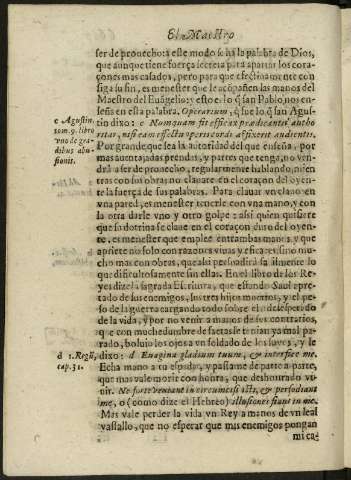 El Maestro
ser de prouecho: a este modo se ha la palabra de Dios,
que aunque tiene fuerça secreta para apartar los cora-
çones mas casados, pero para que efectiuamente con
siga su fin, es menester que le acõpañen las manos del
Maestro del Euãgelio: y esto es lo q̃ san Pablo, nos en-
seña en esta palabra. Operarium, q̃ fue lo q̃ san Agus-
tin dixo: c Nunquam fit efficax prædicantis autho
ritas, nisi eam effectu operis cordi affixerit audientis.
Por grande que sea la autoridad del que enseña, por
mas auentajadas prendas, y partes que tenga, no ven-
drà a ser de prouecho, regularmente hablando, mien
tras con sus obras no clauare en el coraçon del oyen-
te la fuerça de sus palabras. Para clauar vn clauo en
vna pared, es menester tenerle con vna mano, y con
la otra darle vno y otro golpe: assi quien quisiere
que su dotrina se claue en el coraçon duro del oyen-
te, es menester que emplee entrambas manos, y que
apriete no solo con razones viuas y eficazes, sino mu-
cho mas con obras, que assi persuadirà facilmente lo
que dificultosamente sin ellas. En el libro de los Re-
yes dize la sagrada Escritura, que estando Saul apre-
tado de sus enemigos, sus tres hijos muertos, y el pe-
so de la guerra cargando todo sobre el, desesperado
de la vida, y por no venir a manos de sus contrarios,
que con muchedumbre de saetas le tenian ya mal pa-
rado, boluio los ojos a vn soldado de los suyos, y le
dixo: d Euagina gladium tuum, & interfice me.
Echa mano a tu espada, y passame de parte a parte,
que mas vale morir con honra, que deshonrado vi-
uir. Ne forte veniant incircuncisi isti, & perfodiant
me, o (como dize el Hebreo) illusiones fiant in me.
Mas vale perder la vida vn Rey a manos de vn leal
vassallo, que no esperar que mis enemigos pongan
mi ca-
c Agustin.
tom. 9. libro
vno de gra-
dibus abu-
sionis.
d 1. Regũ,
cap. 31.